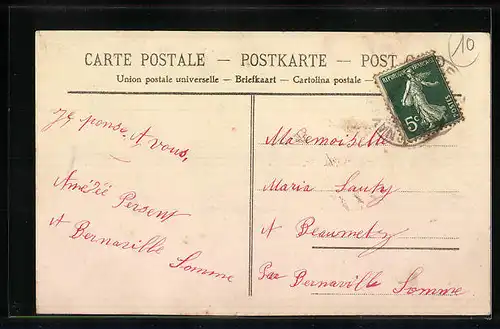 CARTE POSTALE – POSTKARTE – POST
Union postale universelle – Briefkaart – Cartolina postale –
10
REPUBLIQUE FRANÇAISE
5c
POSTES
Je pense A vous,
Amézéé Persent
A Bernaville Somme
Mademoiselle
Maria Sauty
A Beaumetz
Par Bernaville Somme